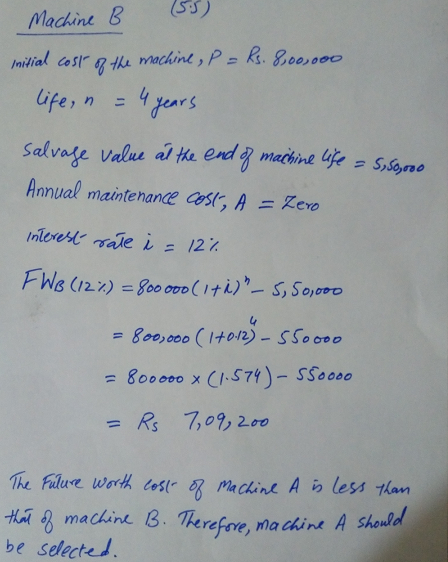 Machine B (5.5)
Initial cost of the machine, P = Rs. 8,00,000
Life, n = 4 years
Salvage value at the end of machine life = 5,50,000
Annual maintenance cost, A = Zero
Interest rate i = 12%
FWB (12%) = 800000 (1+i)ⁿ - 5,50,000
= 800,000 (1+0.12)⁴ - 550000
= 800000 x (1.574) - 550000
= Rs 7,09,200
The Future worth cost of Machine A is less than
that of machine B. Therefore, machine A should
be selected.